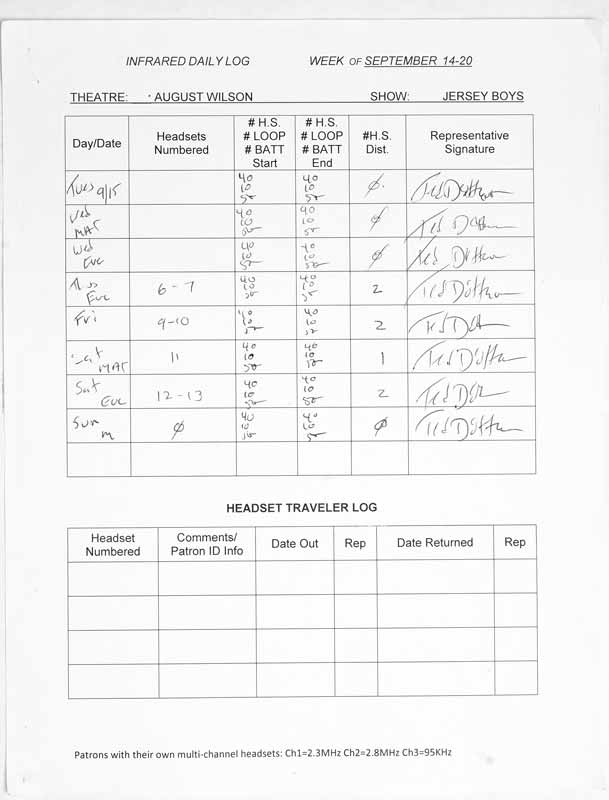 INFRARED DAILY LOG WEEK OF SEPTEMBER 14-20
THEATRE: AUGUST WILSON SHOW: JERSEY BOYS
Day/Date Headsets Numbered # H.S. # LOOP # BATT Start # H.S. # LOOP # BATT End #H.S. Dist. Representative Signature
Tues 9/15 40 10 50 40 10 50 ∅ Ted Dutton
Wed MAT 40 10 50 40 10 50 ∅ Ted
Wed Eve 40 10 50 40 10 50 ∅ Ted Dutton
Eve 6-7 40 10 50 40 10 50 2 Ted Dutton
Fri 9-10 40 10 50 40 10 50 2 Ted
Sat MAT 11 40 10 50 40 10 50 1 Ted Dutton
Sat Eve 12-13 40 10 50 40 10 50 2 Ted
Sun m ∅ 40 10 50 40 10 50 ∅ Ted Dutton
HEADSET TRAVELER LOG
Headset Numbered Comments/ Patron ID Info Date Out Rep Date Returned Rep
Patrons with their own multi-channel headsets: Ch1=2.3MHz Ch2=2.8MHz Ch3=95KHz